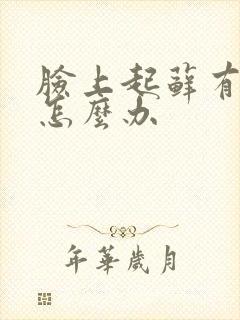 臉上起蘚有
怎麼办
年華歲月